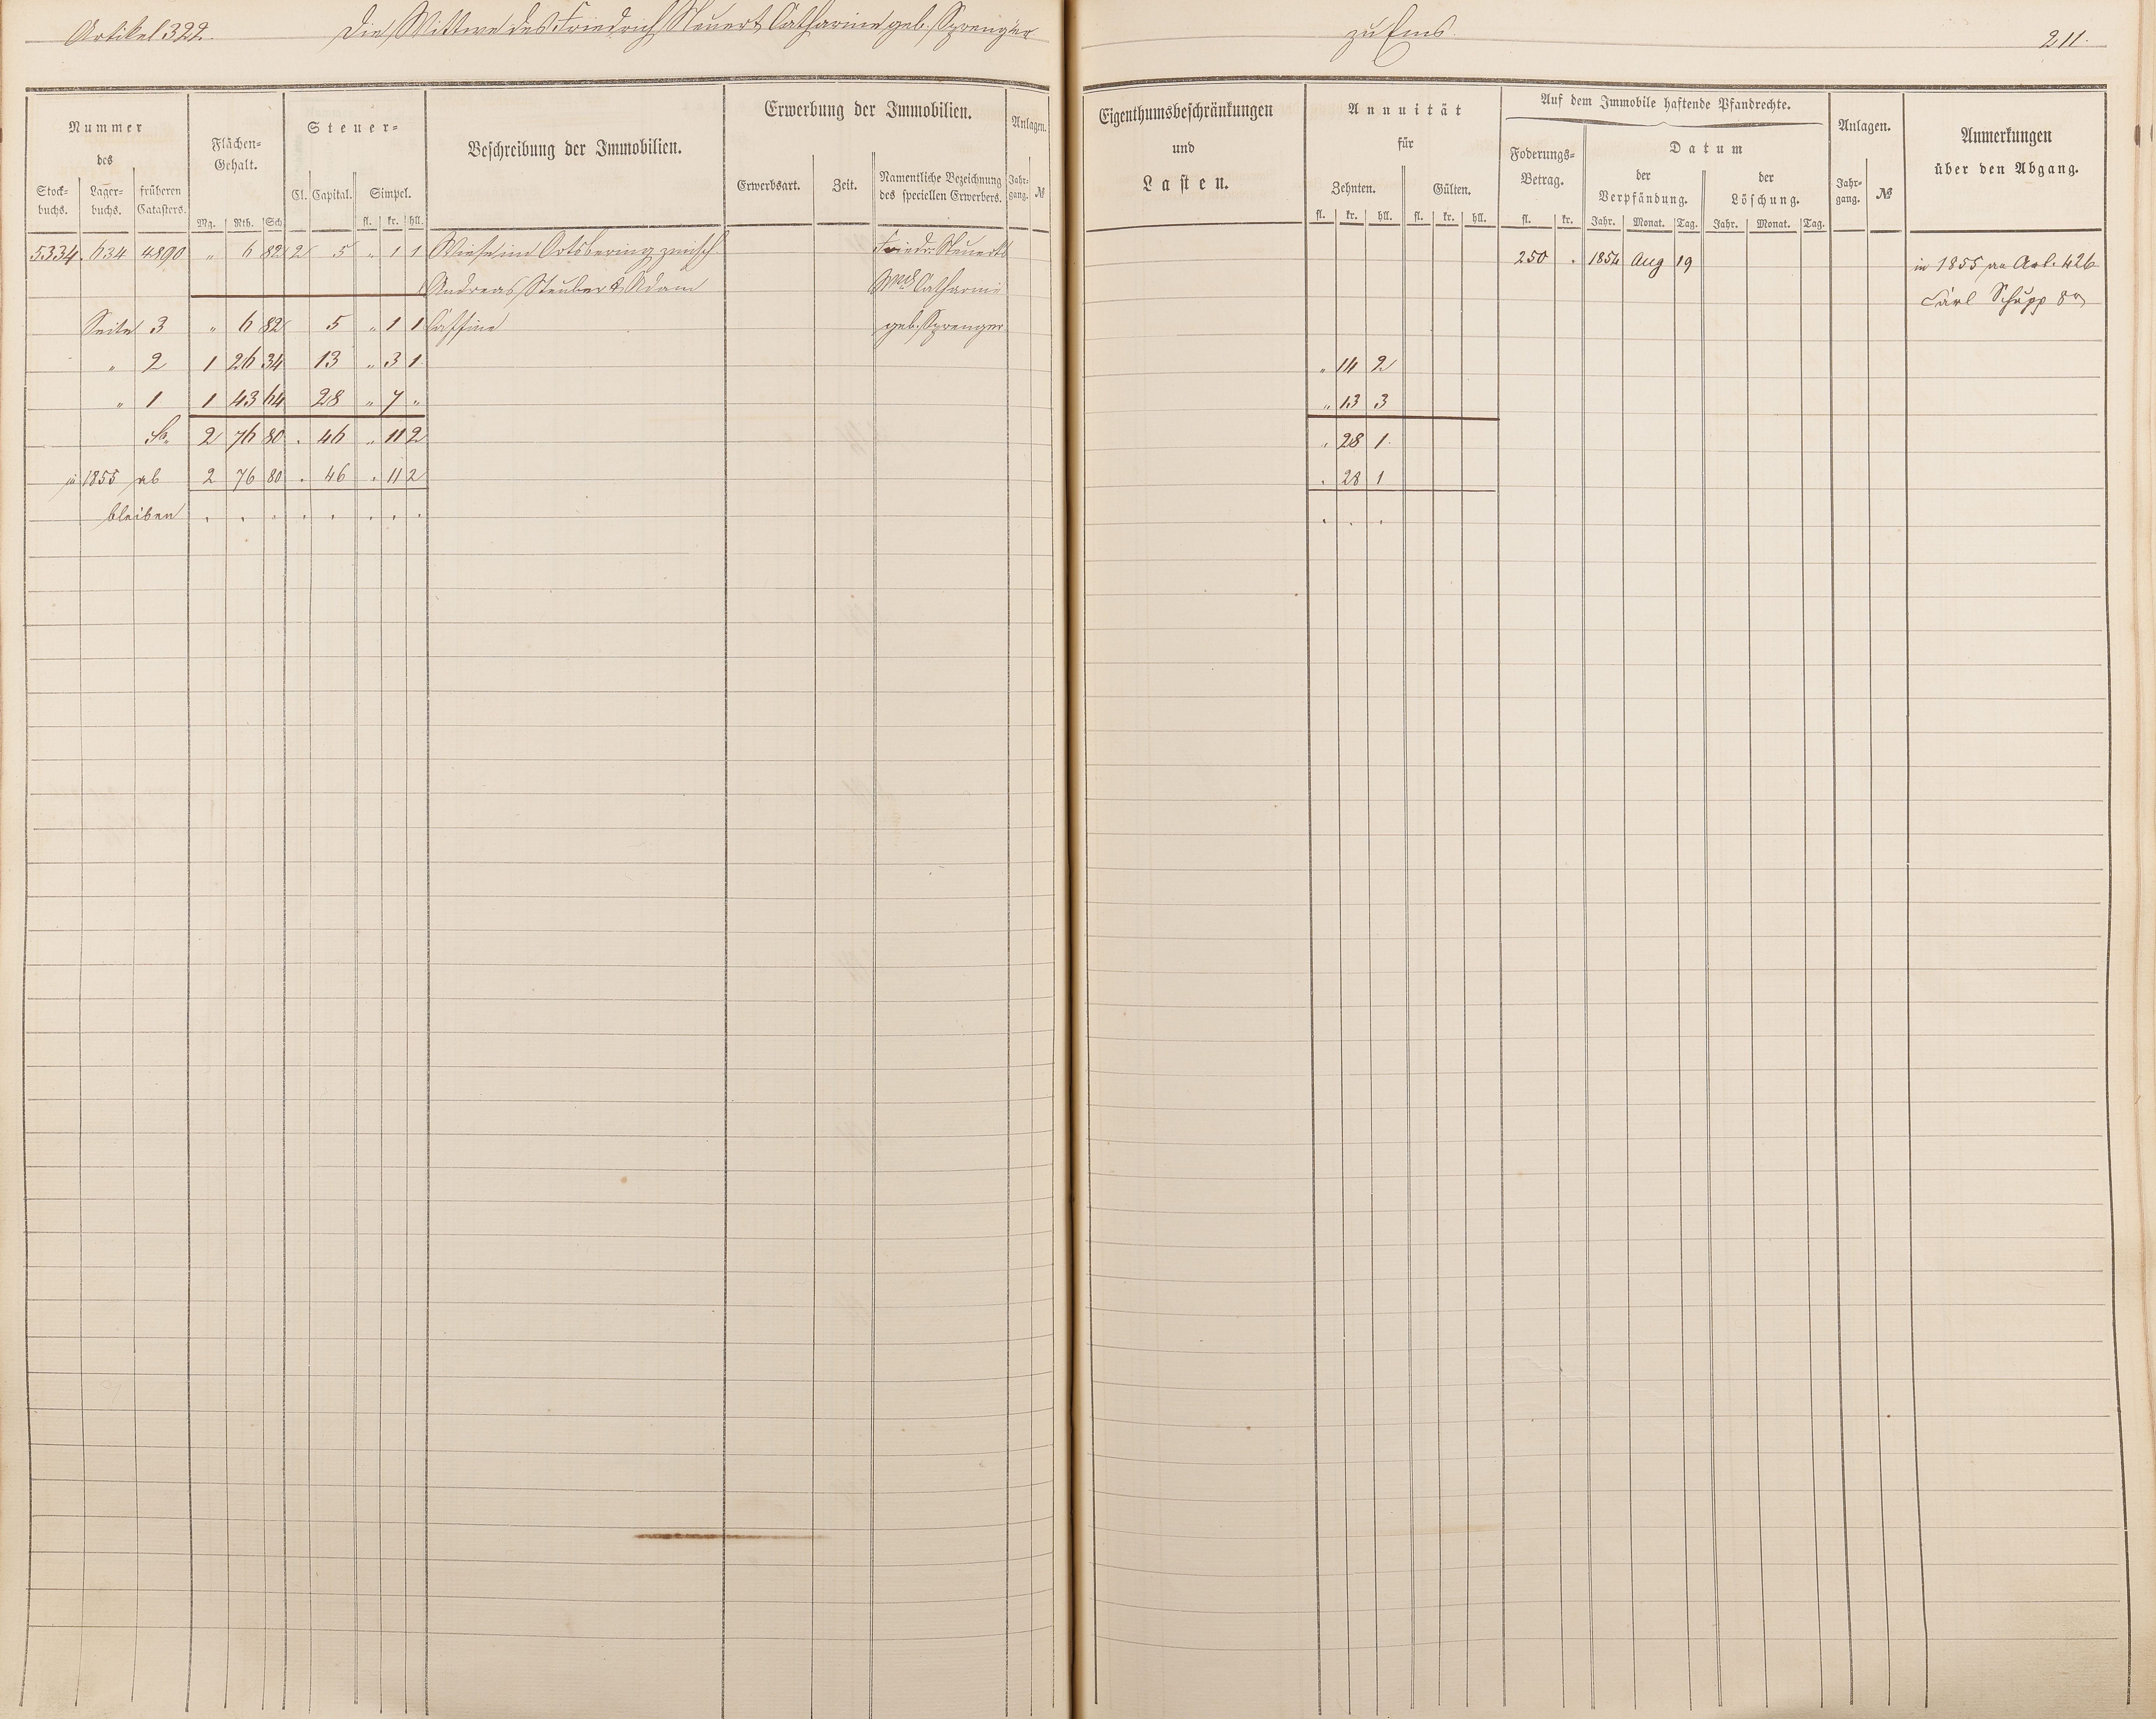 Artikel 322. Die Wittwe des Friedrich Neuert Catharine geb. Sprenger zu Ems. 211.
Nummer des
Stockbuchs. Lagerbuchs. früheren Catasters.
Flächen-Gehalt.
Mg. Rth. Sch.
Steuer-
Cl. Capital. Simpel.
fl. kr. hll.
Beschreibung der Immobilien.
Erwerbung der Immobilien.
Erwerbsart. Zeit. Namentliche Bezeichnung des speciellen Erwerbers.
Anlagen.
Jahrgang. №
Eigenthumsbeschränkungen
und
Lasten.
Annuität
für
Zehnten. Gülten.
fl. kr. hll. fl. kr. hll.
Auf dem Immobile haftende Pfandrechte.
Foderungs-Betrag.
fl. kr.
Datum
der Verpfändung. der Löschung.
Jahr. Monat. Tag. Jahr. Monat. Tag.
Anlagen.
Jahrgang. №
Anmerkungen
über den Abgang.
5334. 634 4890 " 6 82 2 5 " 1 1 Wiese im Ortsbering zwisch. Friedr. Neuerts 250 . 1854 Aug 19 in 1855 an Art. 426
Andreas Steuber & Adam Wwe Catharine Carl Schupp
Seite 3 " 6 82 5 " 1 1 geb. Sprenger
" 2 1 26 34 13 " 3 1. " 14 2
" 1 1 43 64 28 " 7 " " 13 3
Sa. 2 76 80 . 46 " 11 2 . 28 1.
in 1855 ab 2 76 80 . 46 . 11 2 . 28 1
bleiben . . . . . . . . . . .